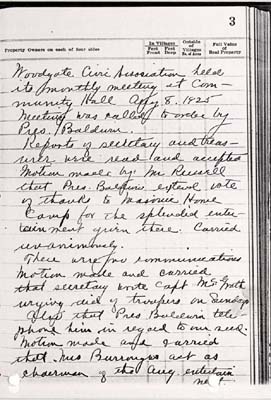 3
Property Owners on each of four sides
In Villages
Feet Front
Feet Deep
Outside of Villages
No. of Acres
Full Value of Real Property
Woodgate Civic Association held
its monthly meeting at Com-
munity Hall Aug. 8, 1925
Meeting was called to order by
Pres. Baldwin.
Reports of secretary and treas-
urer were read and accepted
Motion made by Mr. Russell
that Pres. Baldwin extend vote
of thanks to Masonic Home
Camp for the splendid enter-
tainment given there. Carried
unanimously.
There were two communications
Motion made and carried
that secretary write Capt. McGrath
urging aid of troopers on Sundays
Also that Pres. Baldwin tele-
phone him in regard to our need.
Motion made and carried
that Mrs Burroughs act as
chairman of the Aug. entertain
ment.